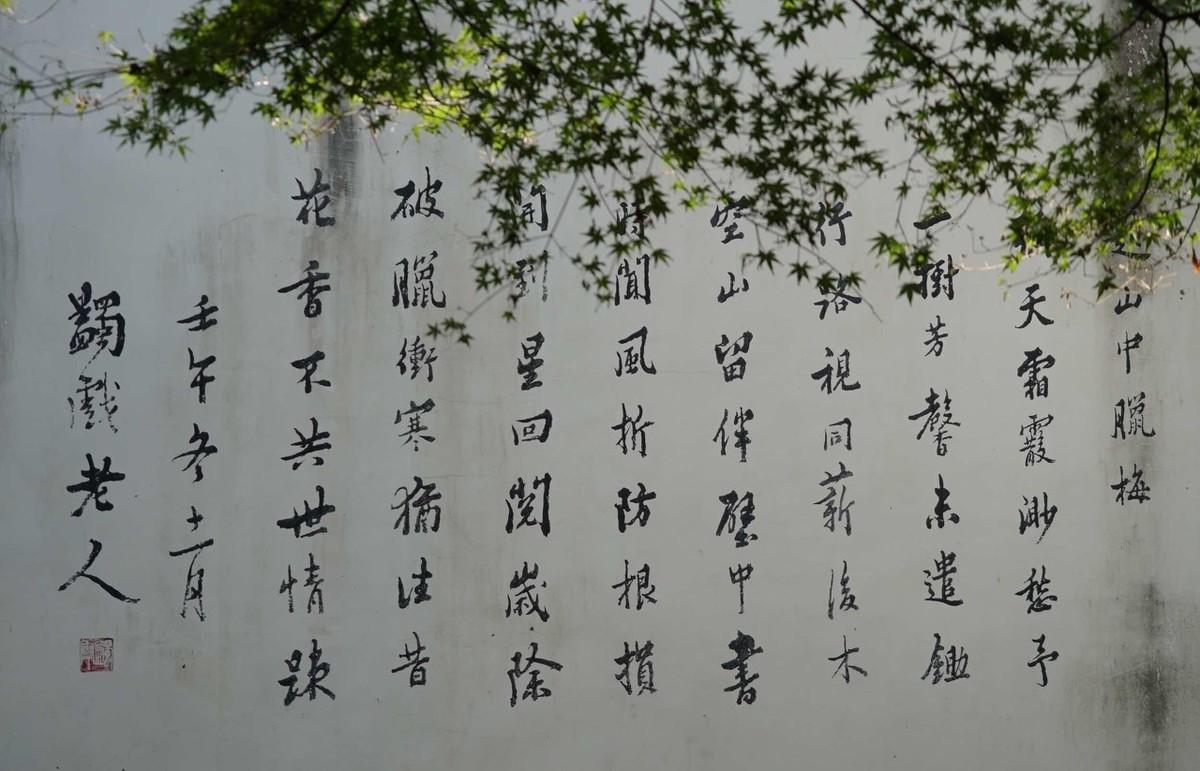 山中臘梅
天霜霰渺愁予
一樹芳馨未遣鋤
行路視同薪後木
空山留伴壁中書
時聞風折防根損
開到星回閱歲除
破臘衝寒猶往昔
花香不共世情疎
壬午冬十二月
蠲戲老人